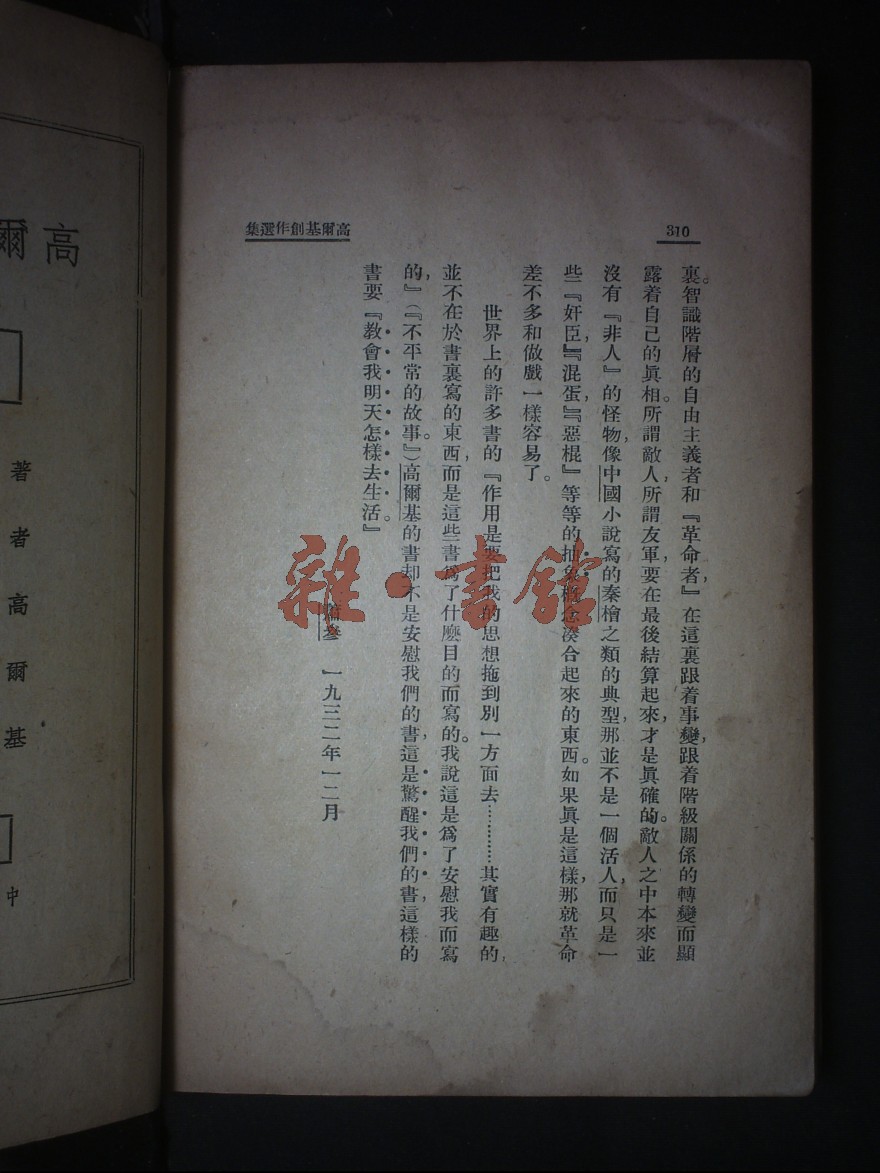 310
高爾基創作選集
裏。智識階層的自由主義者和『革命者，』在這裏跟着事變，跟着階級關係的轉變而顯
露着自己的眞相。所謂敵人，所謂友軍，要在最後結算起來，才是眞確的。敵人之中本來並
沒有『非人』的怪物，像中國小說寫的秦檜之類的典型，那並不是一個活人，而只是一
些『奸臣，』『混蛋，』『惡棍』等等的抽象概念湊合起來的東西。如果眞是這樣，那就革命
差不多和做戲一樣容易了。
世界上的許多書的『作用是要把我的思想拖到別一方面去…………其實有趣的，
並不在於書裏寫的東西，而是這些書爲了什麽目的而寫的。我說這是爲了安慰我而寫
的，』（『不平常的故事。』）高爾基的書却不是安慰我們的書，這是驚醒我們的書，這樣的
書要『教會我明天怎樣去生活。』
一九三二年一二月
雜·書館
高爾
著者高爾基
中